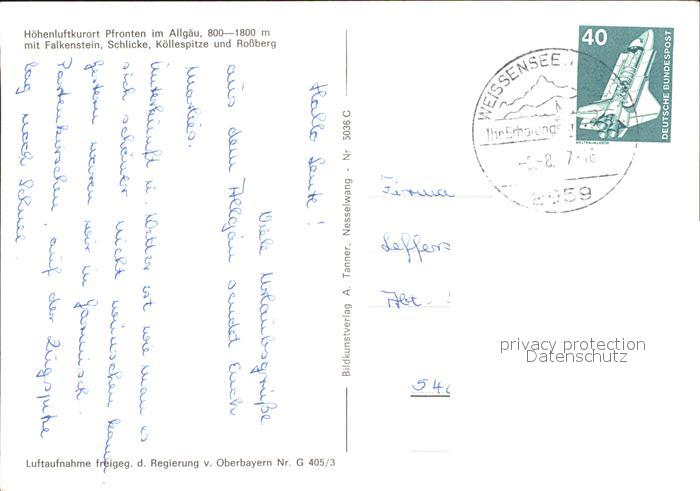 Höhenluftkurort Pfronten im Allgäu, 800—1800 m
mit Falkenstein, Schlicke, Köllespitze und Roßberg
Hallo Leute!
Viele Urlaubsgrüße
aus dem Allgäu sendet Euch
Marlies.
Unterkunft u. Wetter ist wie man es
sich schöner nicht wünschen kann
Gestern waren wir in Garmisch-
Partenkirschen, auf der Zugspitze
lag noch Schnee.
Bildkunstverlag A. Tanner, Nesselwang · Nr 5036 C
Luftaufnahme freigeg. d. Regierung v. Oberbayern Nr. G 405/3
40
DEUTSCHE BUNDESPOST
WELTRAUMLABOR
WEISSENSEE
Ihr Erholungs
-8. 7
8959
Firma
Leffers
Abt.
privacy protection
Datenschutz